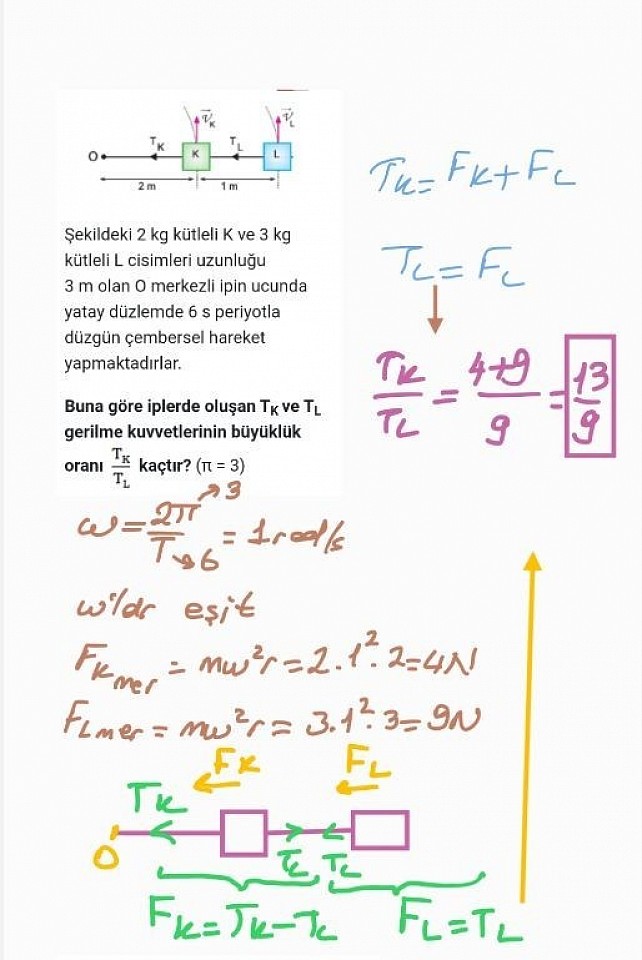 V⃗K
V⃗L
O TK K TL L
2 m 1 m
Şekildeki 2 kg kütleli K ve 3 kg
kütleli L cisimleri uzunluğu
3 m olan O merkezli ipin ucunda
yatay düzlemde 6 s periyotla
düzgün çembersel hareket
yapmaktadırlar.
Buna göre iplerde oluşan TK ve TL
gerilme kuvvetlerinin büyüklük
oranı TK/TL kaçtır? (π = 3)
TK = FK + FL
TL = FL
TK/TL = 4+9/9 = 13/9
ω = 2π/T = 1 rad/s
3
6
w'lar eşit
FKmer = mω²r = 2.1².2 = 4N
FLmer = mω²r = 3.1².3 = 9N
FK FL
TK
O TL TL
FK = TK - TL FL = TL